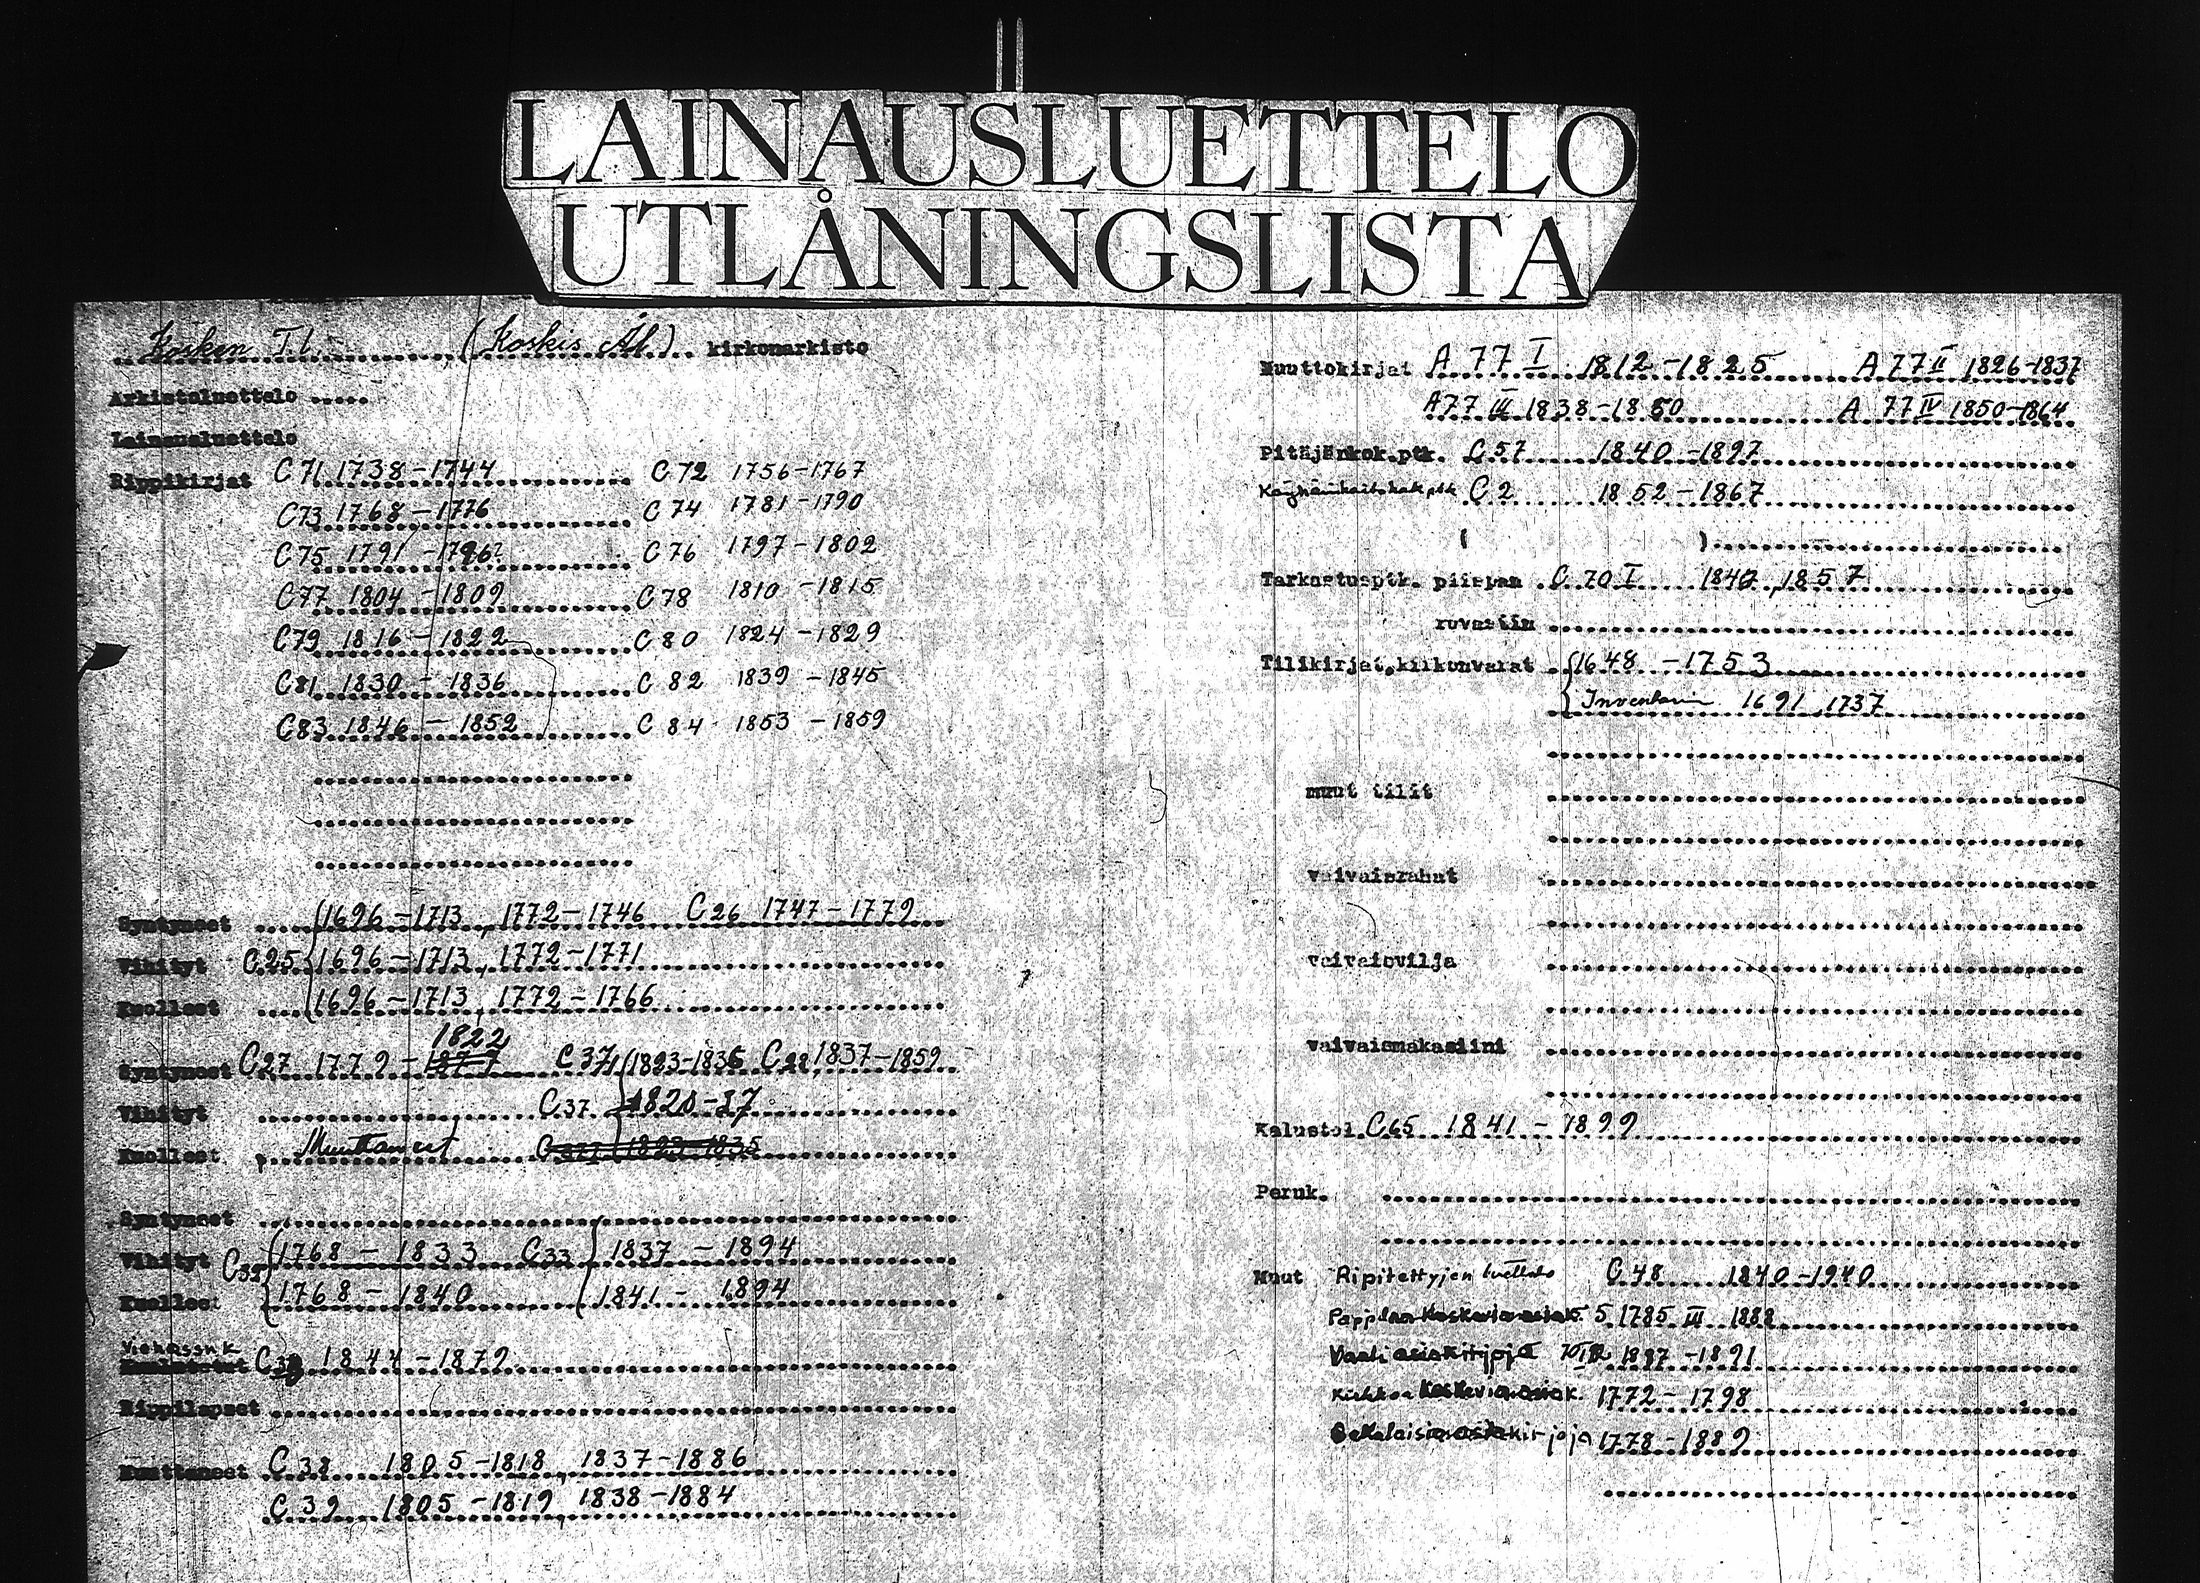 LAINAUSLUETTELO
UTLÅNINGSLISTA
Kosken T.l. (Koskis Ål) kirkonarkisto
Arkistoluettelo
Lainausluettelo
Rippikirjat C71 1738-1744 C72 1756-1767
C73 1768-1776 C74 1781-1790
C75 1791-1796? C76 1797-1802
C77 1804-1809 C78 1810-1815
C79 1816-1822 C80 1824-1829
C81 1830-1836 C82 1839-1845
C83 1846-1852 C84 1853-1859
Syntyneet 1696-1713, 1772-1746 C26 1747-1779
Vihityt C25 1696-1713, 1772-1771
Kuolleet 1696-1713, 1772-1766
1822
Syntyneet C27 1779-1877 C37 1823-1836 C28 1837-1859
Vihityt C37
Kuolleet Muuttaneet
Syntyneet
Vihityt C32 1768-1833 C33 1837-1894
Kuolleet 1768-1840 1841-1894
1844-1879
Rippilapset
Muuttaneet C38 1805-1818, 1837-1886
C39 1805-1819, 1838-1884
Muuttokirjat A 77 I 1812-1825 A 77 II 1826-1837
A77 III 1838-1850 A 77 IV 1850-1864
Pitäjänkok.ptk. C57 1840-1897
C2 1852-1867
( )
Tarkastusptk. piispan C 70 I 1842, 1857
rovastin
Tilikirjat, kirkonvarat 1648-1753
1691, 1737
muut tilit
vaivaisrahat
vaivaisvilja
vaivaismakasiini
Kalustol. C65 1841-1899
Peruk.
Muut Ripitettyjen luettelo C48 1840-1940
Pappilaa koskevia asiak. 5 1785 III 1888
Vaali asiakirjoja 1887-1891
Kirkkoa koskevia asiak. 1772-1798
Sekalaisia asiakirjoja 1778-1889